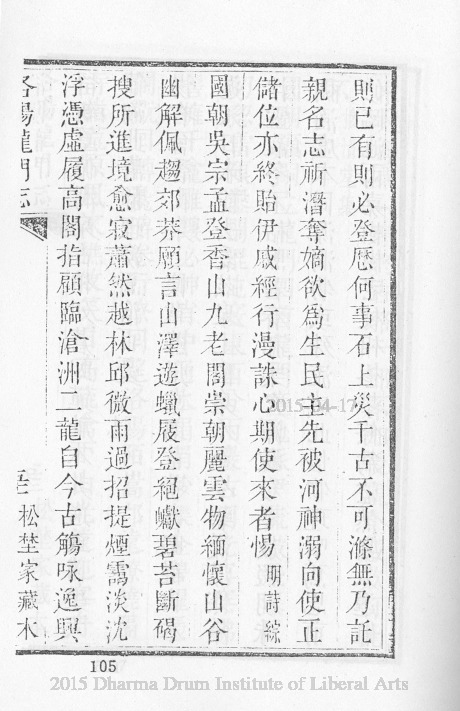 則已有則必登歷何事石上災千古不可滌無乃託
親名志祈潛奪嫡欲為生民主先被河神溺向使正
儲位亦終貽伊慼經行漫誅心期使來者惕 明詩綜
國朝吳宗孟登香山九老閣崇朝麗雲物緬懷山谷
幽解佩趨郊莽願言山澤遊蠟屐登絕巘碧苔斷碣
搜所進境愈寂蕭然越林邱微雨過招提煙靄淡沈
浮憑虛履高閣指顧臨滄洲二龍自今古觴咏逸興
洛陽龍門志
松埜家藏木
105
2015-04-17
2015 Dharma Drum Institute of Liberal Arts